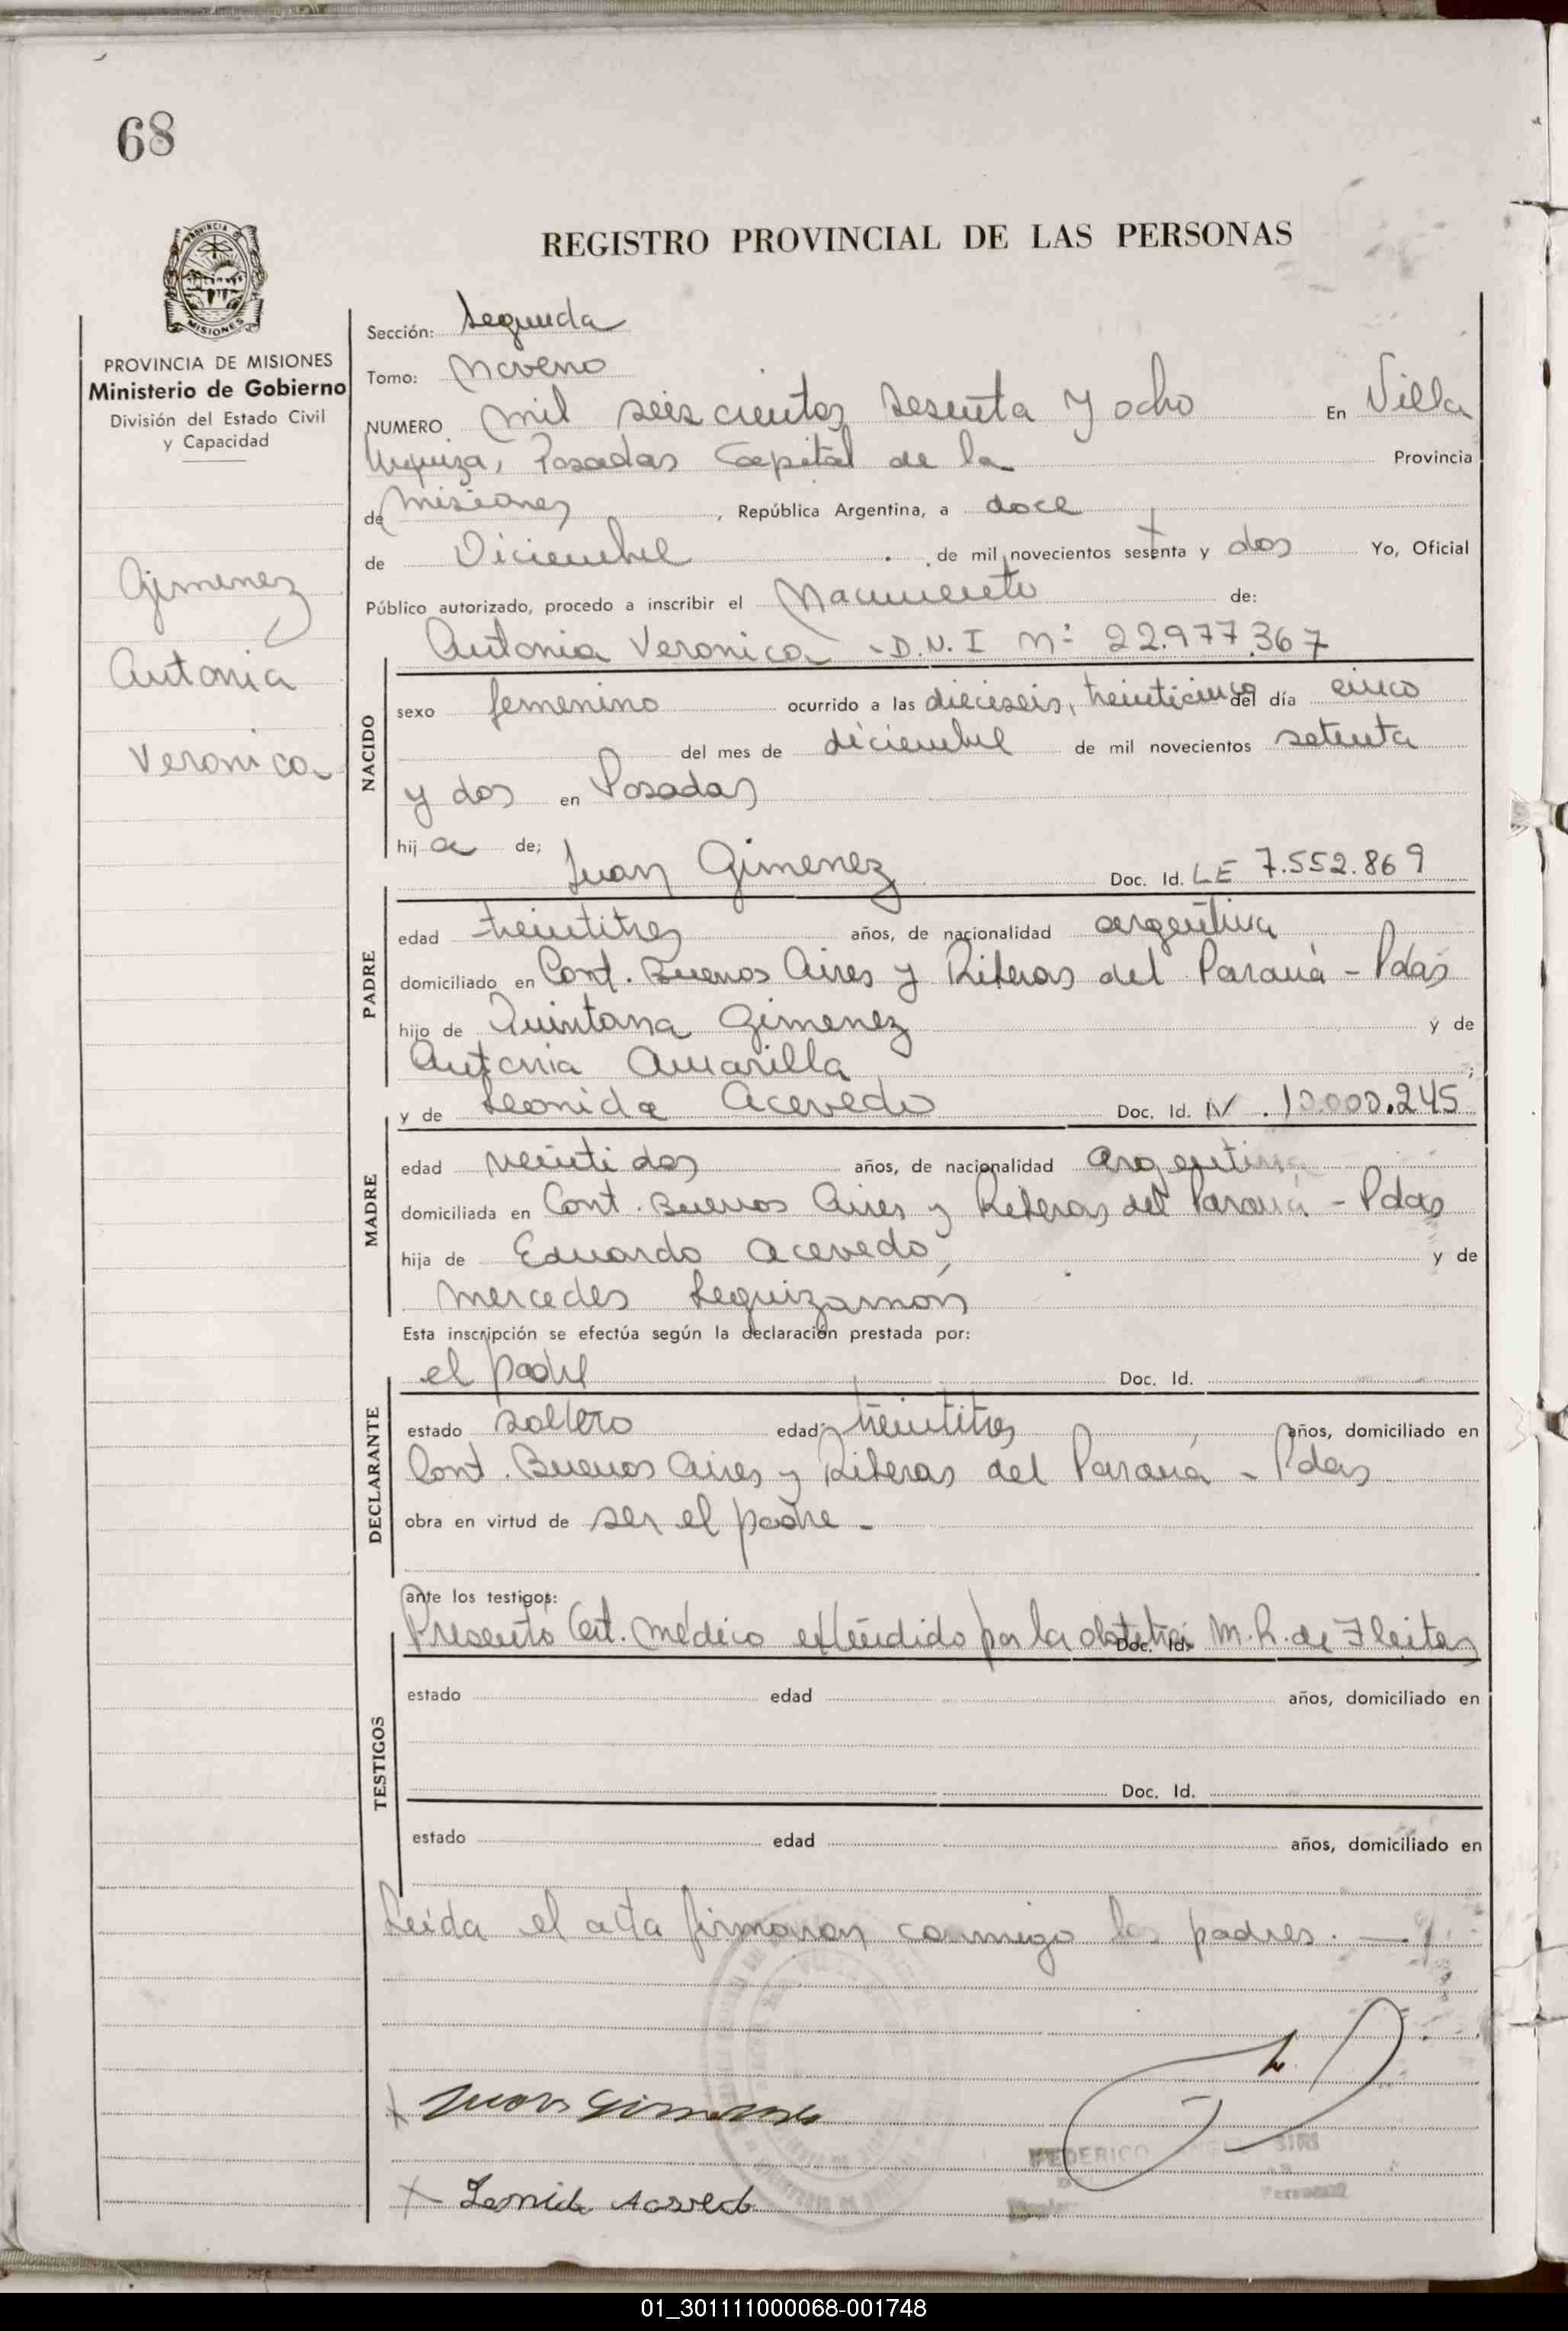 68
PROVINCIA DE MISIONES
Ministerio de Gobierno
División del Estado Civil
y Capacidad
Gimenez
Antonia
Veronica
REGISTRO PROVINCIAL DE LAS PERSONAS
Sección: Segunda
Tomo: Noveno
NUMERO mil seiscientos sesenta y ocho En Villa
Urquiza, Posadas Capital de la Provincia
de Misiones, República Argentina, a doce
de Diciembre de mil novecientos setenta y dos Yo, Oficial
Público autorizado, procedo a inscribir el Nacimiento de:
Antonia Veronica - D.N.I Nº 22.977.367
NACIDO
sexo femenino ocurrido a las dieciseis, treinticinco del día cinco
del mes de diciembre de mil novecientos setenta
y dos en Posadas
hija de;
Juan Gimenez Doc. Id. LE 7.552.869
PADRE
edad treintitres años, de nacionalidad argentina
domiciliado en Cont. Buenos Aires y Riberas del Paraná - Pdas
hijo de Quintana Gimenez y de
Antonia Amarilla;
y de Leonida Acevedo Doc. Id. N .10.000.245
MADRE
edad veintidos años, de nacionalidad argentina
domiciliada en Cont. Buenos Aires y Riberas del Paraná - Pdas
hija de Eduardo Acevedo, y de
Mercedes Leguizamón
Esta inscripción se efectúa según la declaración prestada por:
el padre Doc. Id.
DECLARANTE
estado soltero edad treintitres años, domiciliado en
Cont. Buenos Aires y Riberas del Paraná - Pdas
obra en virtud de ser el padre -
ante los testigos:
Presentó Cert. médico extendido por la obstetra M.R. de Fleitas Doc. Id.
TESTIGOS
estado edad años, domiciliado en
Doc. Id.
estado edad años, domiciliado en
Leída el acta firmaron conmigo los padres. —
x Juan Gimenez
x Leonida Acevedo
FEDERICO
01_301111000068-001748